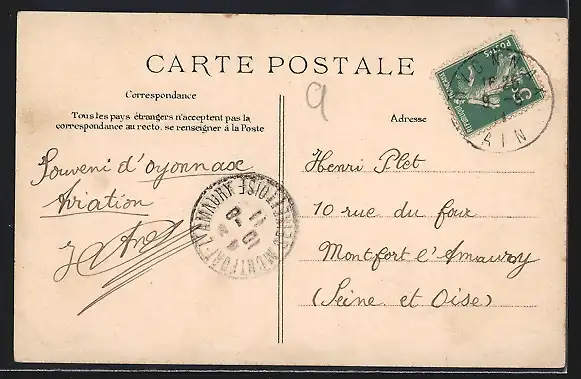 CARTE POSTALE
Correspondance
Tous les pays étrangers n'acceptent pas la
correspondance au recto, se renseigner à la Poste
Adresse
9
Souveni d'oyonnax
Aviation
Henri Plet
10 rue du four
Montfort l'Amaury
(Seine et Oise)
MONTFORT-L'AMAURY SEINE-ET-OISE
AIN
POSTES
5